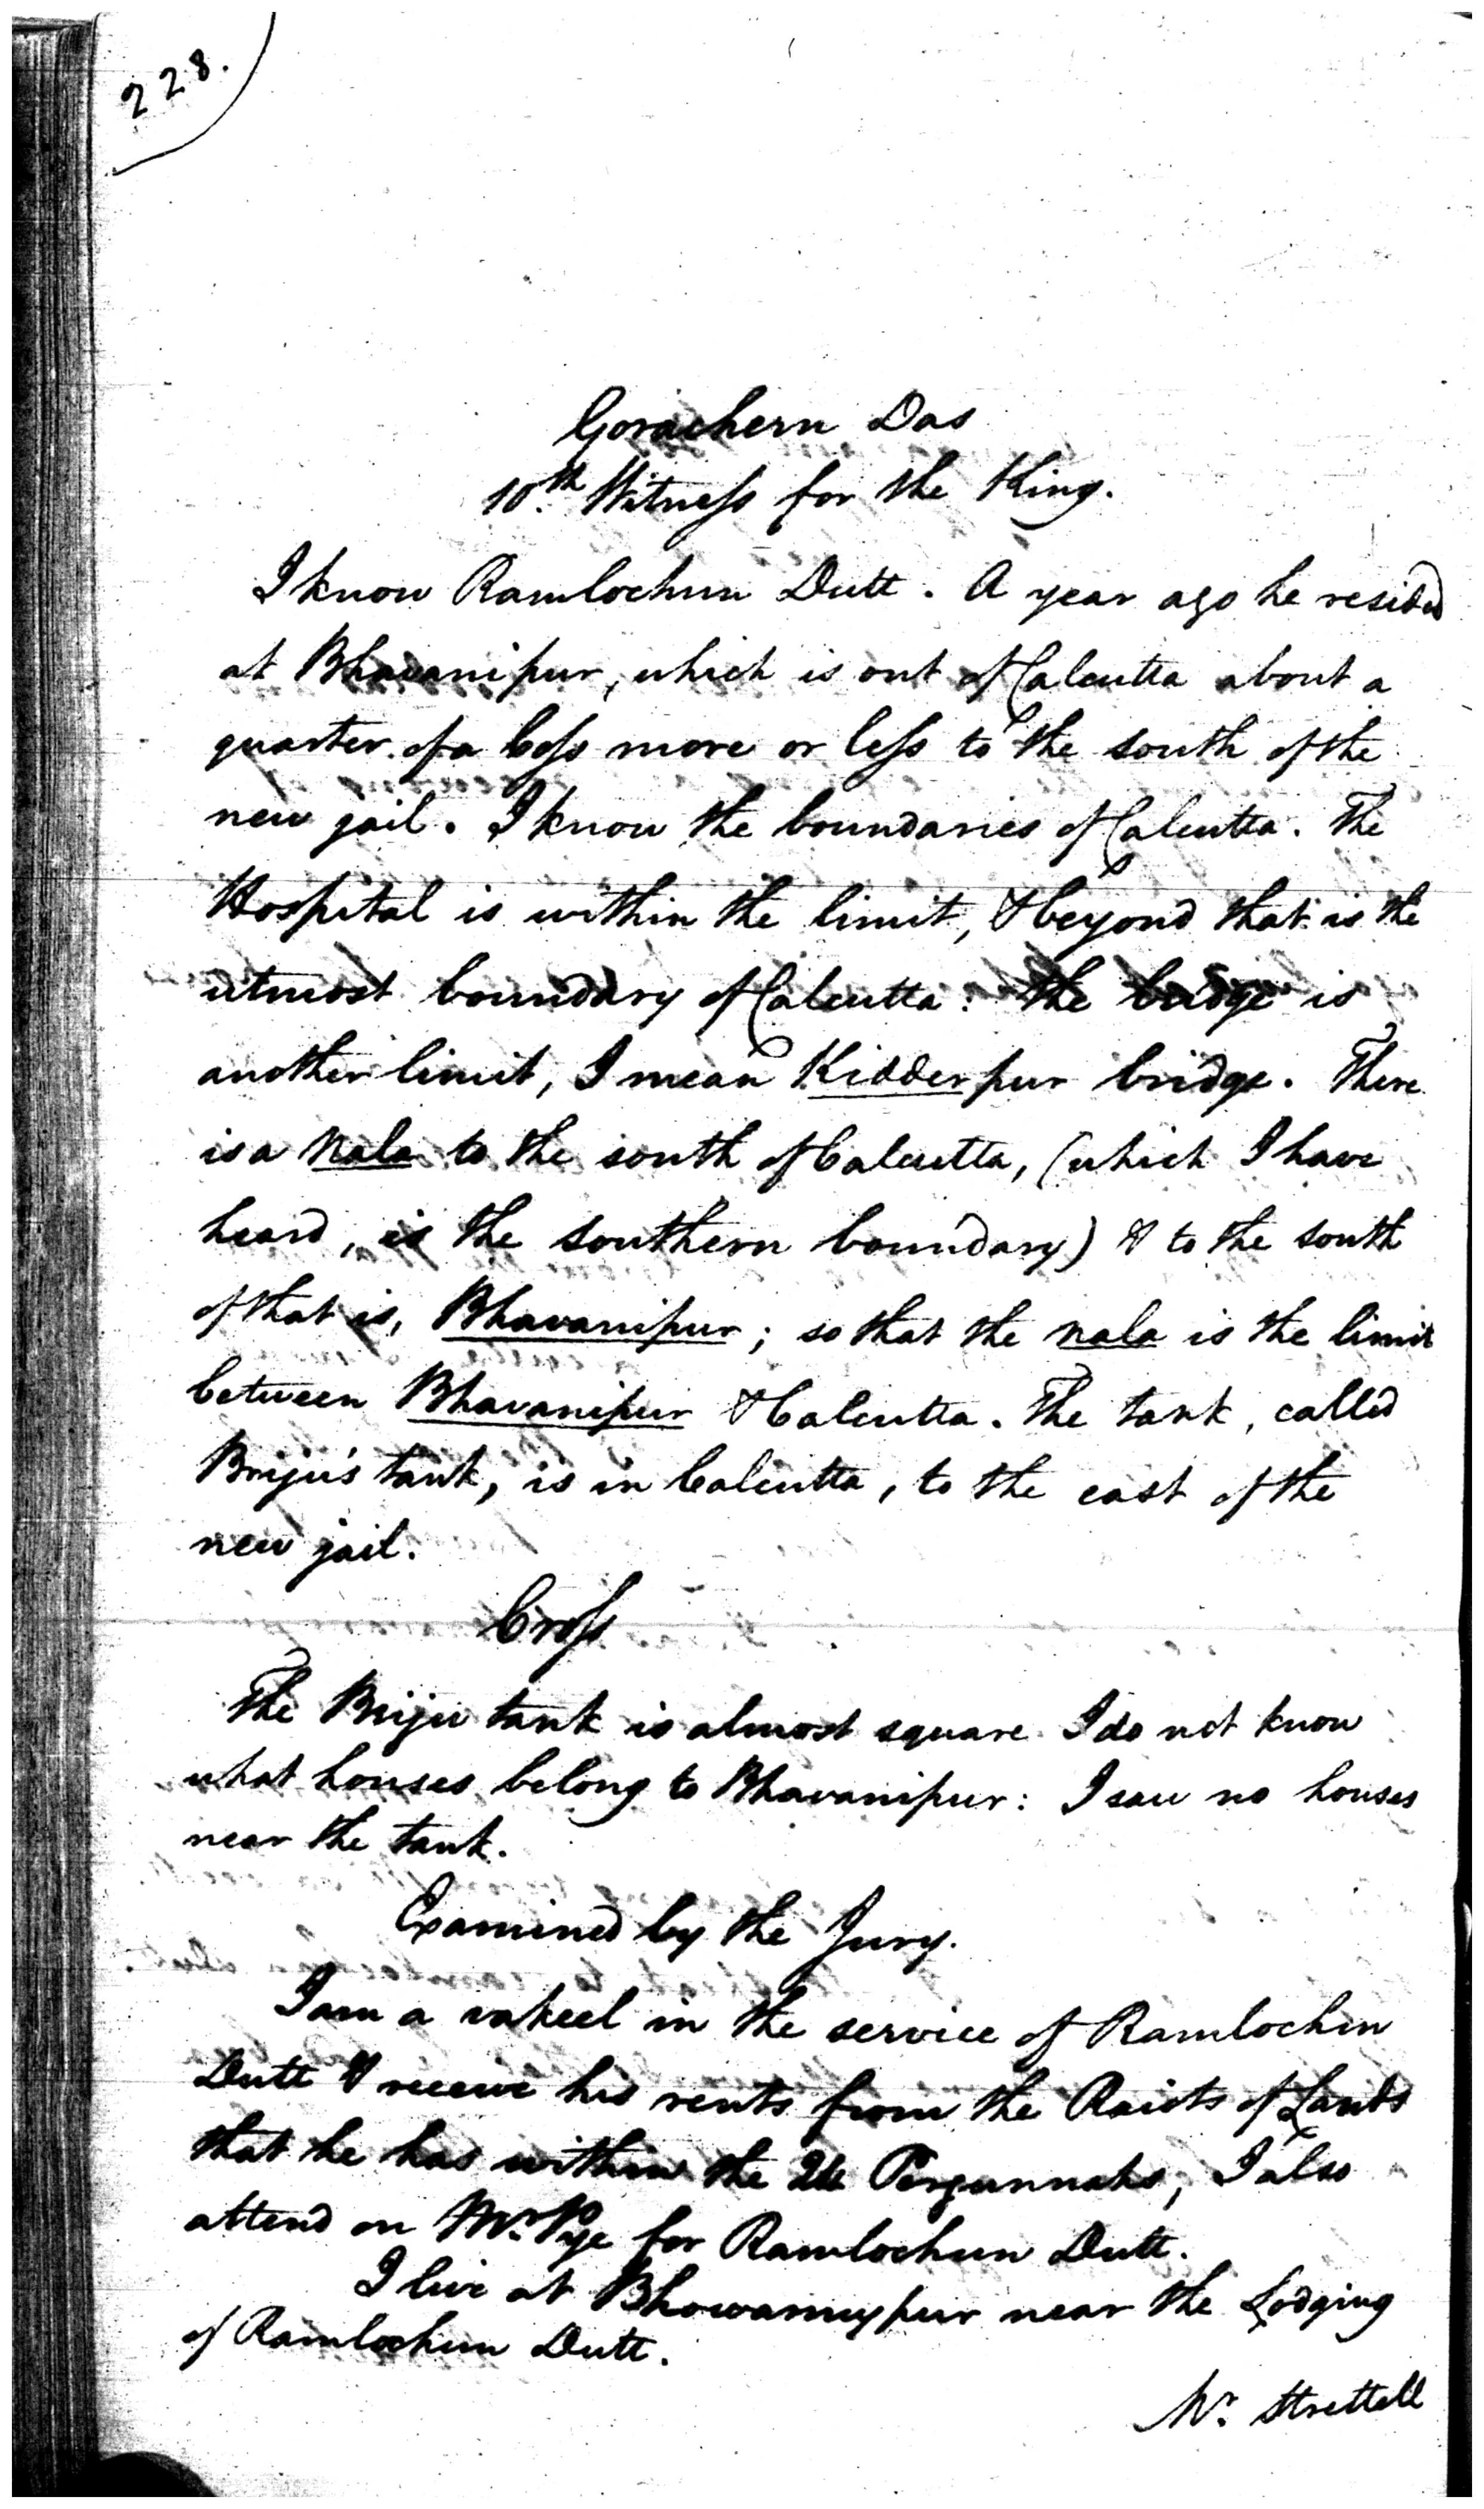 228.
Gorachern Das
10th. Witneſs for the King.
I know Ramlochun Dutt. A year ago he resided
at Bhavanipur, which is out of Calcutta about a
quarter of a Coſs more or leſs to the south of the
new jail. I know the boundaries of Calcutta. The
Hospital is within the limit, & beyond that is the
utmost boundary of Calcutta: the bridge is
another limit, I mean Kidderpur bridge. There
is a Nala to the south of Calcutta, (which I have
heard, is the southern boundary) & to the south
of that is, Bhavanipur; so that the nala is the limit
between Bhavanipur & Calcutta. The tank, called
Briju's tank, is in Calcutta, to the east of the
new jail.
Croſs
The Briju tank is almost square. I do not know
what houses belong to Bhavanipur: I saw no houses
near the tank.
Examined by the Jury.
I am a vakeel in the service of Ramlochun
Dutt & receive his rents from the Raiots of Lands
that he has within the 24 Pergunnahs, I also
attend on Mr. Pye for Ramlochun Dutt.
I live at Bhowannypur near the Lodging
of Ramlochun Dutt.
Mr. Strettell